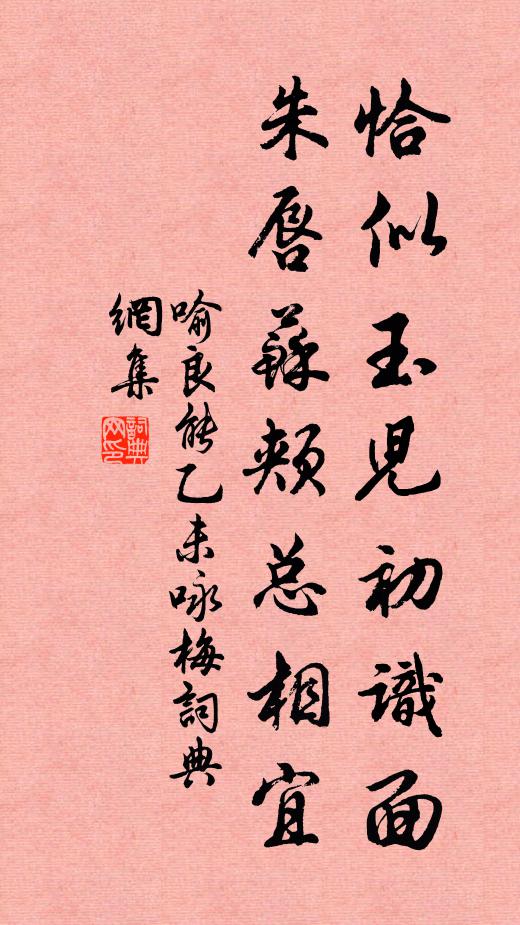 恰似玉児初識面
朱唇蘇頰总相宜
喻良能乙未咏梅詞典
網集
詞典
网印